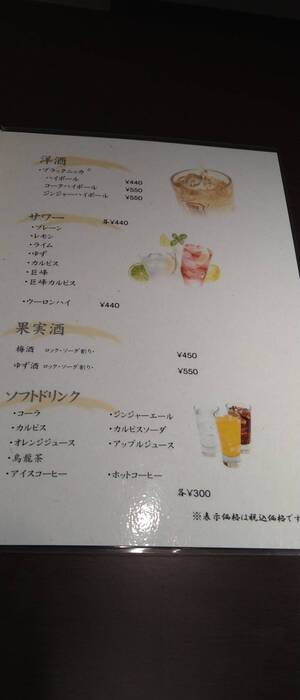 洋酒
・ブラックニッカ
ハイボール ¥440
コークハイボール ¥550
ジンジャーハイボール ¥550
サワー 各¥440
・プレーン
・レモン
・ライム
・ゆず
・カルピス
・巨峰
・巨峰カルピス
・ウーロンハイ ¥440
果実酒
梅酒 ロック・ソーダ割り・ ¥450
ゆず酒 ロック・ソーダ割り・ ¥550
ソフトドリンク
・コーラ ・ジンジャーエール
・カルピス ・カルピスソーダ
・オレンジジュース ・アップルジュース
・烏龍茶
・アイスコーヒー ・ホットコーヒー
各¥300
※表示価格は税込価格です